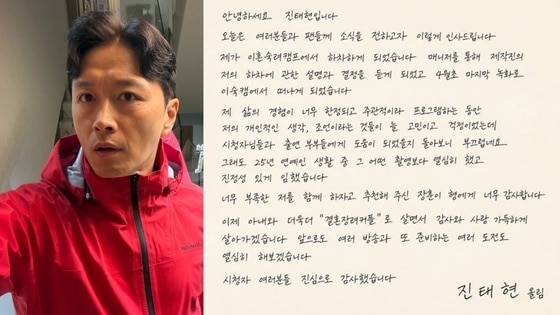 안녕하세요. 진태현입니다
오늘은 여러분들과 팬들께 소식을 전하고자 이렇게 인사드립니다
제가 이혼숙려캠프에서 하차하게 되었습니다 매니저를 통해 제작진의
저의 하차에 관한 설명과 결정을 듣게 되었고 4월초 마지막 녹화로
이숙캠에서 떠나게 되었습니다
제 삶의 경험이 너무 한정되고 주관적이라 프로그램하는 동안
저의 개인적인 생각, 조언이라는 것들이 늘 고민이고 걱정이었는데
시청자님들과 출연 부부들에게 도움이 되었을지 돌아보니 부끄럽네요.
그래도 25년 연예인 생활 중 그 어떤 촬영보다 열심히 했고
진정성 있게 임했습니다
너무 부족한 저를 함께 하자고 추천해 주신 장훈이 형에게 너무 감사합니다
이제 아내와 더욱더 "결혼장려커플"로 살면서 감사와 사랑 가득하게
살아가겠습니다 앞으로도 여러 방송과 또 준비하는 여러 도전도
열심히 해보겠습니다
시청자 여러분들 진심으로 감사했습니다
진태현 올림